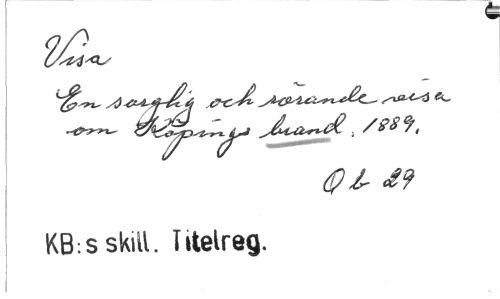 Visa
En sorglig och rörande visa
om Köpings brand. 1889.
Q b 29
KB:s skill. Titelreg.